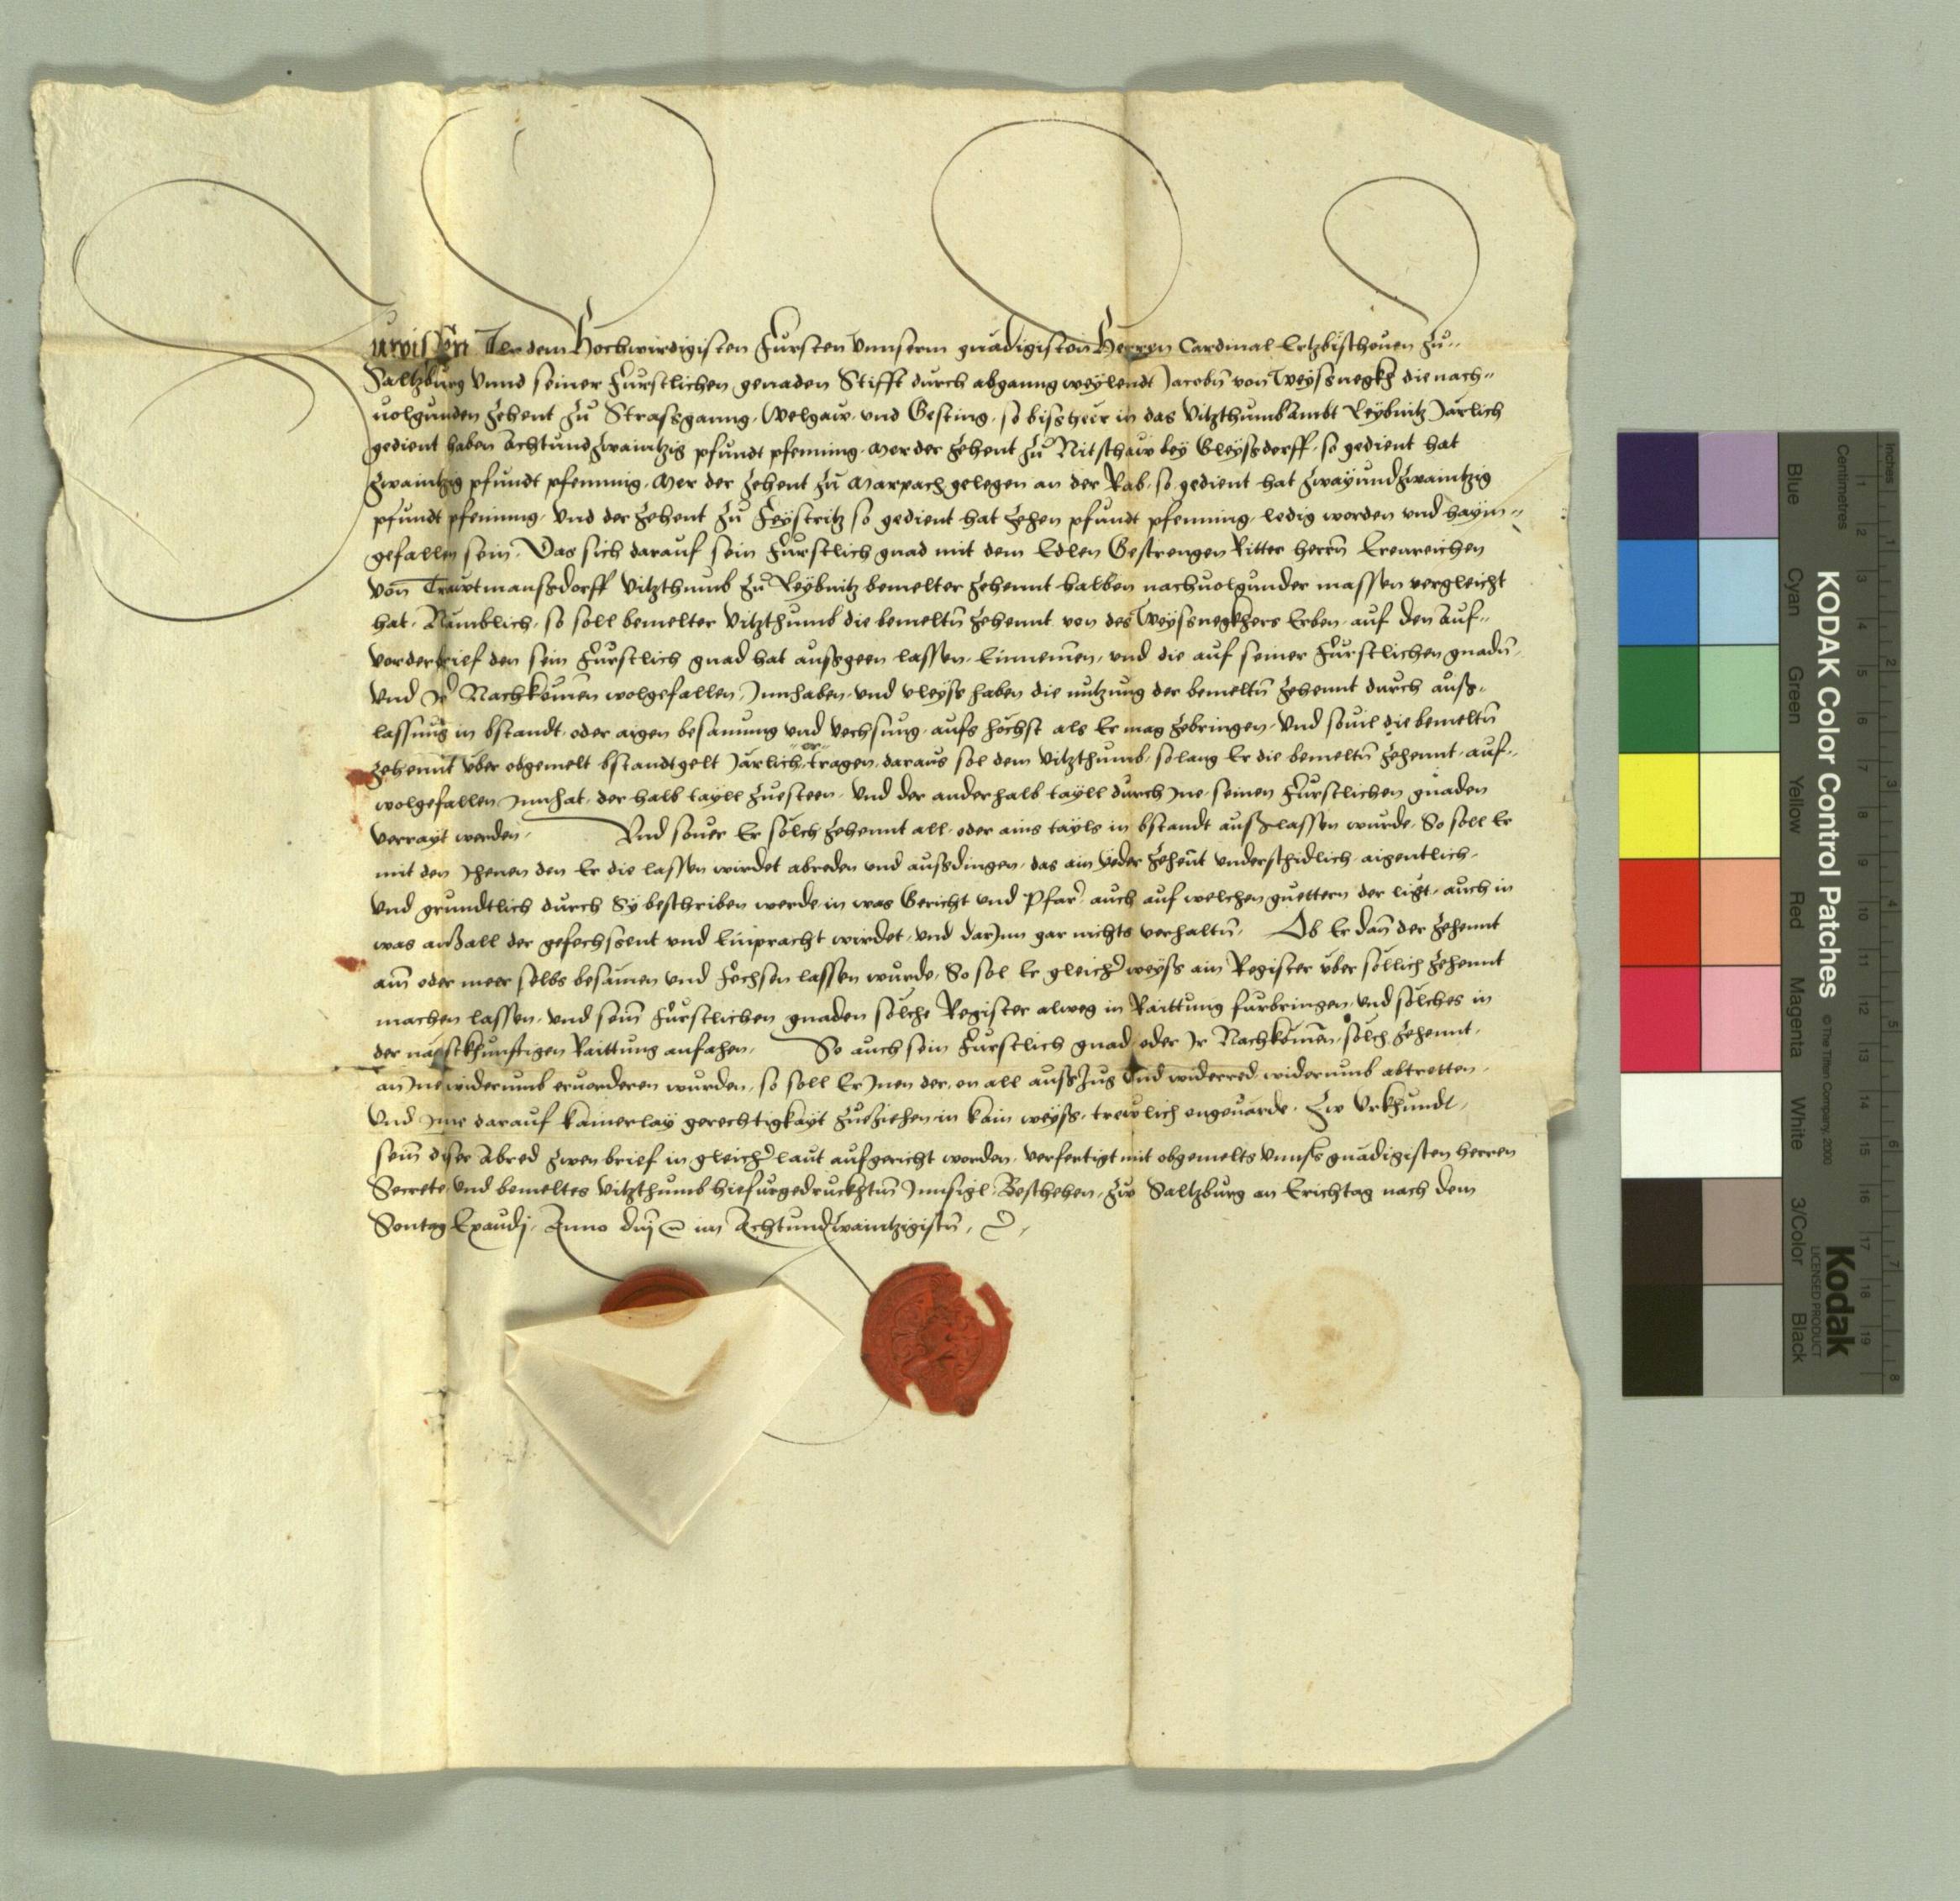 Zuwissen Als dem Hochwirdigisten Fursten Vnnserm gnadigisten Herren Cardinal Ertzbischouen zu
Saltzburg Vnnd seiner Furstlichen genaden Stifft durch abganng weylendt Jacobn von Weyssnegkh die nach
uolgunden zehent zu Strassganng, Welgaw, vnd Gesting, so bissheer in das Vitzthumbambt Leybnitz Järlich
gedient haben achtundzwaintzig pfundt pfenning, Mer der zehent zu Nitschaw bey Gleyssdorff, so gedient hat
zwaintzig pfundt pfenning, Mer der zehent zu Marpach gelegen an der Rab, so gedient hat zwayundzwaintzig
pfundt pfening, Vnd der zehent zu Feystritz so gedient hat zehen pfundt pfenning, ledig worden vnd hayin
gefallen sein, Das sich darauf sein Furstlich gnad mit dem Edlen Gestrengen Ritter herrn Erenreichen
von Trawtmanssdorff Vitzthumb zu Leybnitz bemelter zehennt halben nachuolgunder massen vergleicht
hat, Namblich, so soll bemelter Vitzthumb die bemeltn zehennt von des Weyssnegkhers Erben, auf den auf
vorderbrief den sein Furstlich gnad hat aussgeen lassen, Einnemen, vnd die auf seiner Furstlichen gnadn
Vnd Jr Nachkomen wolgefallen, Jnnhaben, vnd vleyss haben die nutzung der bemeltn zehennt durch auss
lassung in bstandt, oder aigen besamung vnd vechsung, aufs hochst als Er mag zebringen, Vnd souil die bemeltn
zehennt vber obgemelt bstandtgelt Järlich er tragen, daraus sol dem Vitzthumb, solang Er die bemeltn zehennt, auf
wolgefallen Jnnhat, der halb tayll zuesteen, Vnd der anderhalb tayll durch Jne, seinen Furstlichen gnaden
verrayt werden, Vnd souer Er solch zehennt all, oder ains tayls in bstandt ausslassen wurde, So soll Er
mit den Jhenen den Er die lassen wirdet abreden vnd aussdingen, das ain yeder zehent underschidlich, aigentlich,
Vnd grundtlich durch Sy beschriben werde, in was Gericht vnd Pfarr, auch auf welchen guettern der ligt, auch in
was anzall der gefechssent vnd Einpracht wirdet, vnd darJnn gar nichts verhaltn, Ob Er dan der zehennt
ain oder meer selbs besamen vnd fechsen lassen wurde, So sol Er gleicher weyss ain Register vber sollich zehennt
machen lassen, vnd sein Furstlichen gnaden solche Register alweg in Raittung furbringen, vnd solches in
der nagstkhunftigen Raittung anfahen, So auch sein Furstlich gnad, oder Jr Nachkomen, solch zehennt,
an Jne widerumb eruorderen wurden, so soll Er Jnen der, on all ausszug vnd widerred, widerumb abtretten,
Vnd Jme darauf kainerlay gerechtigkayt zueziehen in kain weyss, trewlich ongeuarde, Zw Vrkhundt,
sein diser abred zwen brief in gleicher laut aufgericht worden, verfertigt mit obgemelts vnnsers gnadigisten herren
Secrete, vnd bemeltes Vitzthumb hiefurgedruckhtn Jnnsigl, Beschehen, Zw Saltzburg an Erichtag nach dem
Sontag Exaudj, Anno dnj im Achtundzwaintzigistn,
KODAK Color Control Patches © The Tiffen Company, 2000
Kodak LICENSED PRODUCT
Inches 1 2 3 4 5 6 7 8
Centimetres 1 2 3 4 5 6 7 8 9 10 11 12 13 14 15 16 17 18 19
Blue Cyan Green Yellow Red Magenta White 3/Color Black